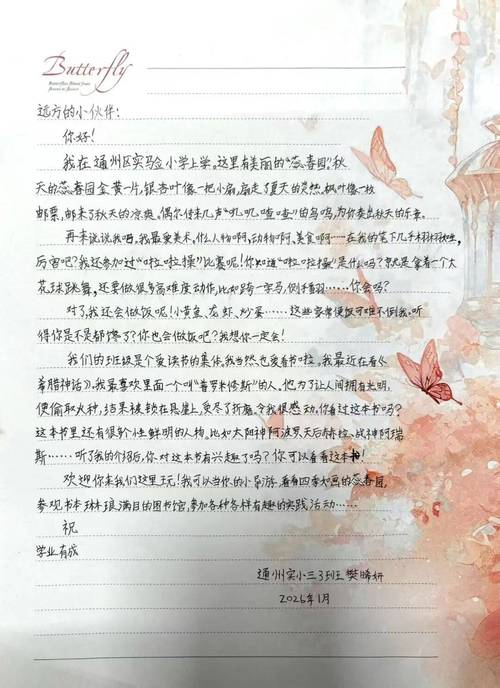 Butterfly
远方的小伙伴：
你好！
我在通州区实验小学上学。这里有美丽的“蕊春园”，秋
天的蕊春园金黄一片，银杏叶像一把小扇，扇走了夏天的炎热，枫叶像一枚
邮票，邮来了秋天的凉爽。偶尔传来几声“叽叽喳喳”的鸟鸣，为你奏出秋天的乐章。
再来说说我吧，我最爱美术，什么人物啊，动物啊、美食啊……在我的笔下几乎栩栩如生，
厉害吧？我还参加过“啦啦操”比赛呢！你知道“啦啦操”是什么吗？就是拿着一个大
花球跳舞，还要做很多高难度动作，比如跨一字马，侧手翻……你会吗？
对了，我还会做饭呢！小黄鱼、龙虾、炒蛋……这些家常便饭可难不倒我。听
得你是不是都馋了？你也会做饭吧？我想你一定会！
我们的班级是个爱读书的集体，我当然也爱看书啦。我最近在看《
希腊神话》，我最喜欢里面一个叫“普罗米修斯”的人，他为了让人间拥有光明，
便偷取火种，结果被锁在悬崖上，受尽了折磨，令我很感动，你看过这本书吗？
这本书里还有很多个性鲜明的人物。比如太阳神阿波罗、天后赫拉、战神阿瑞
斯……听了我的介绍后，你对这本书有兴趣了吗？你可以看看这本书！
欢迎你来我们这里玩！我可以当你的小导游，看看四季如画的蕊春园，
参观书本琳琅满目的图书馆，参加各种各样有趣的实践活动……
祝
学业有成
通州实小三3班 樊晞妍
2026年1月